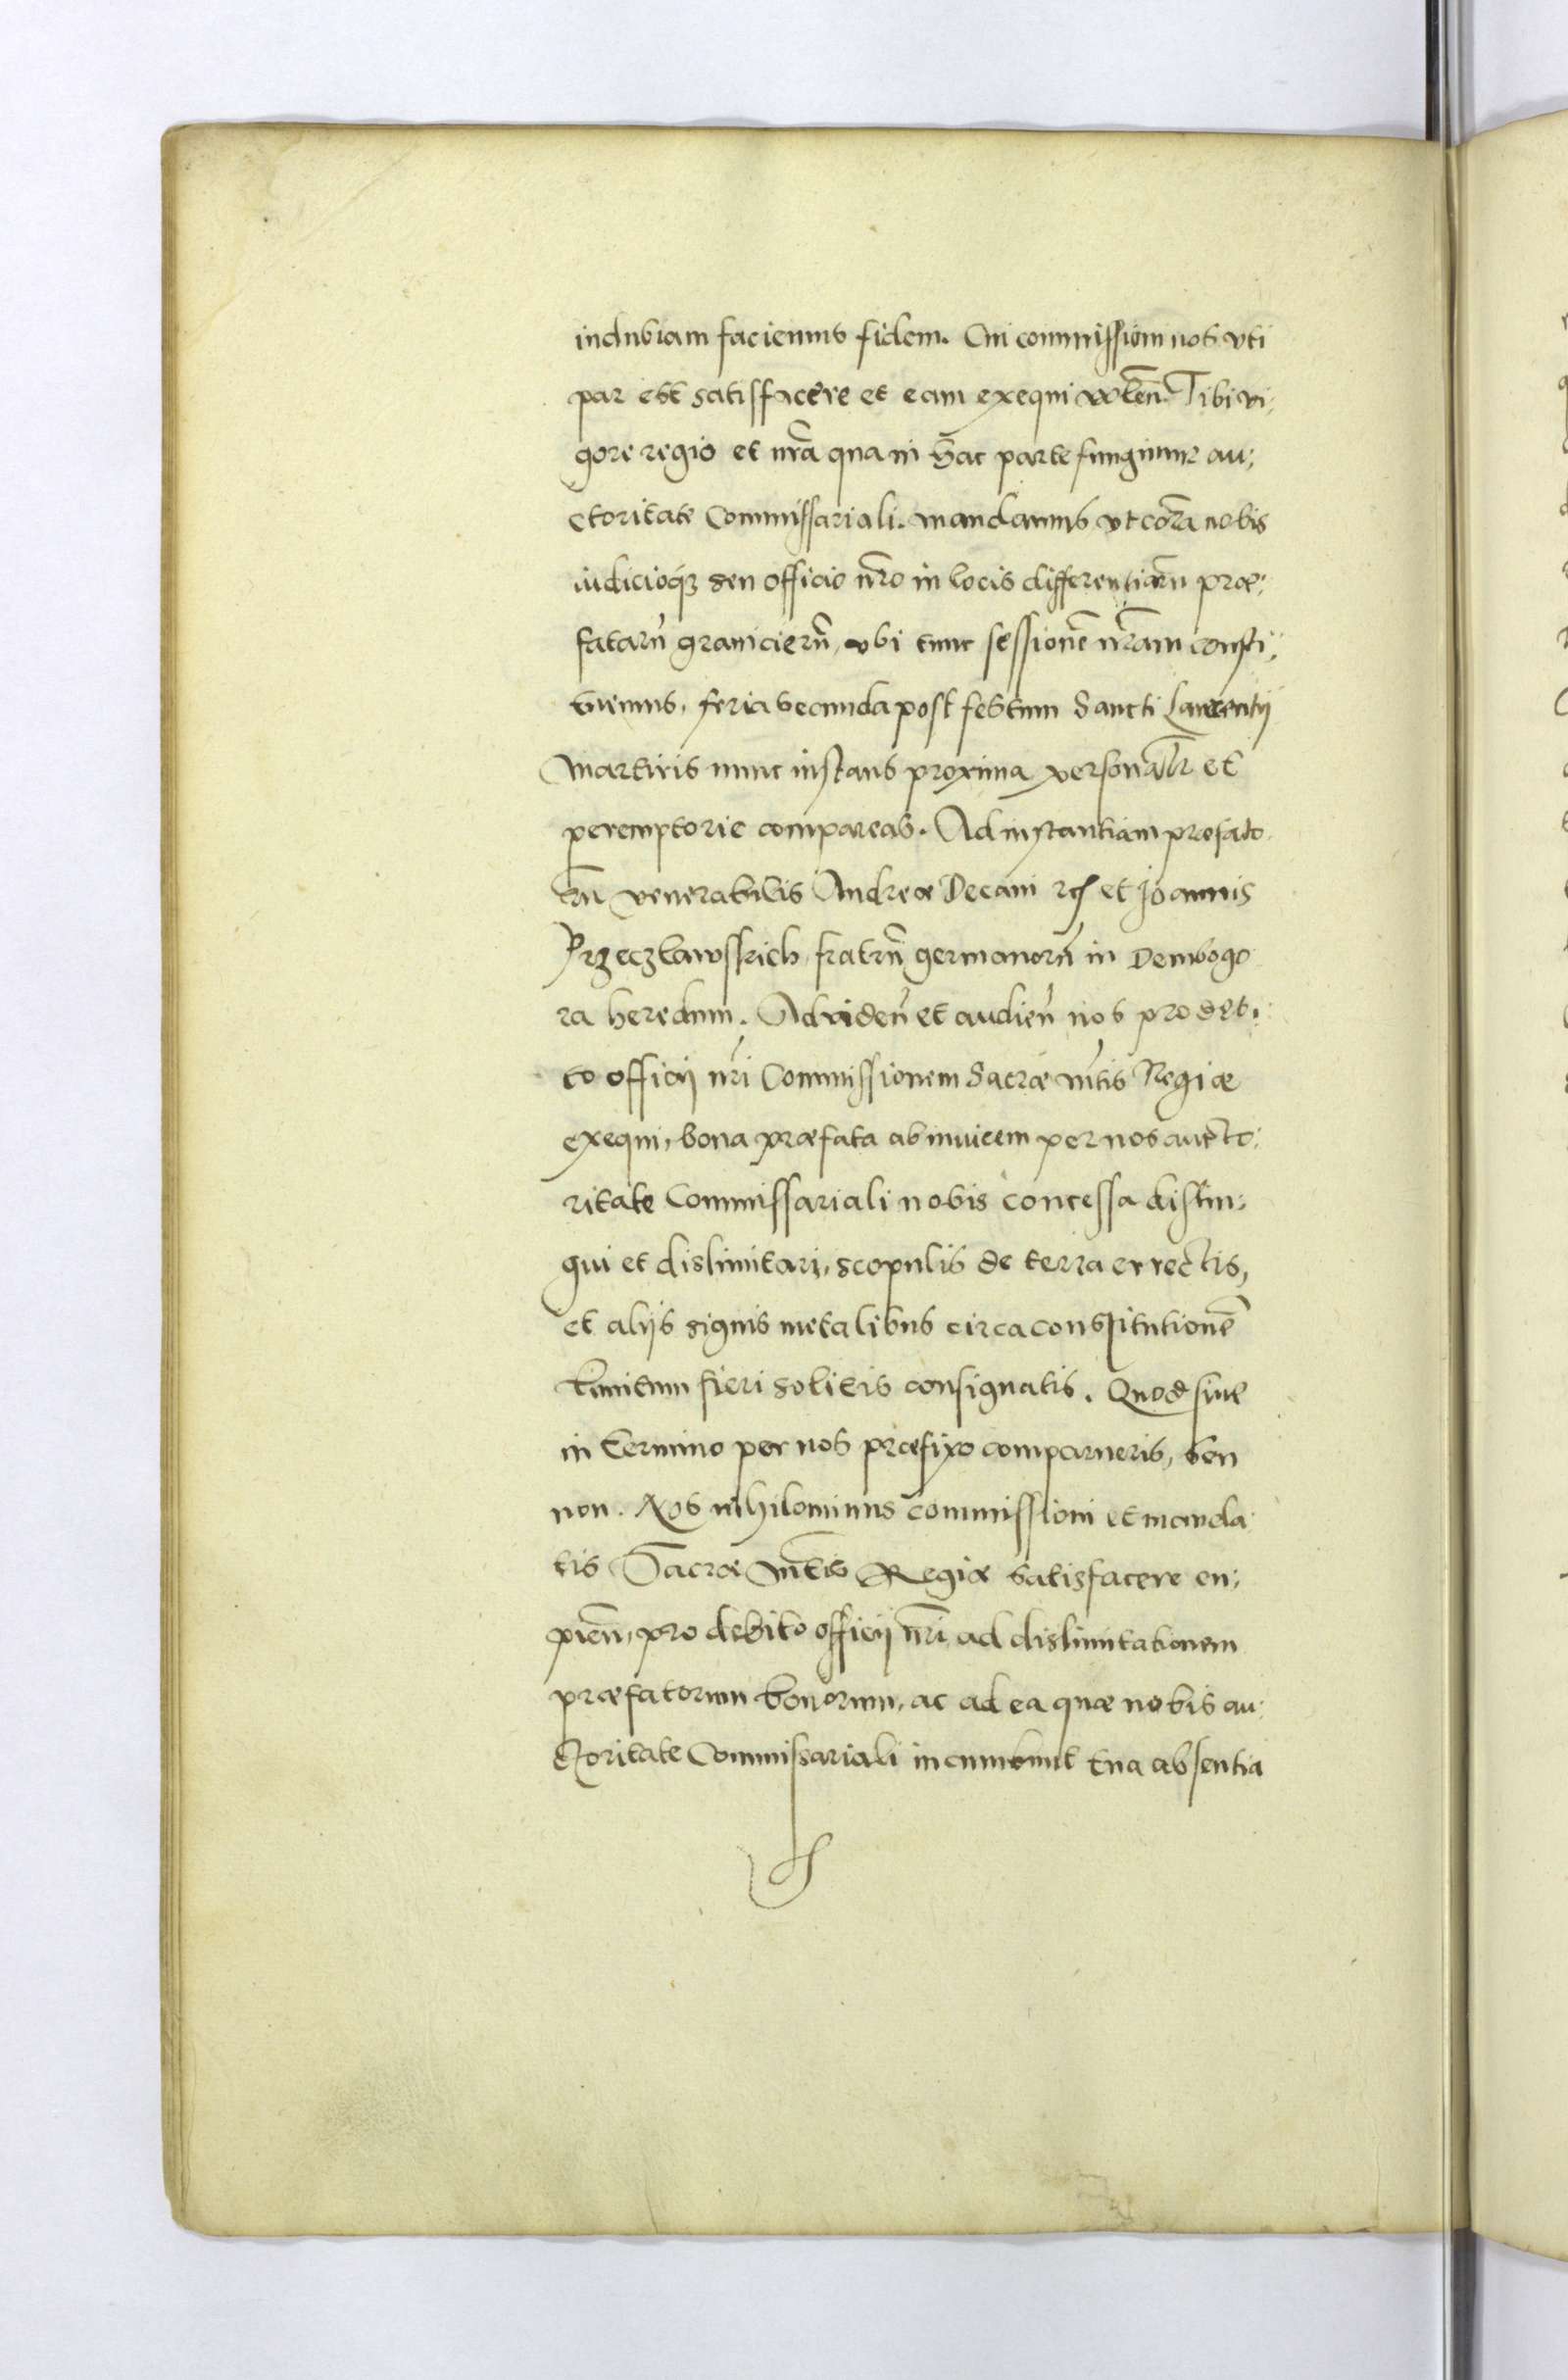 indubiam faciemus fidem. Cui commissioni nos uti
par est satisffacere et eam exequi volen̄. Tibi vi:
gore regio et nrā qua in hac parte fungimur au:
ctoritate Commissariali. mandamus vt corā nobis
iudicioq3 seu officio nr̄o in locis differentiarū præ:
fatarū granicierū, vbi tunc sessionē nr̄am consti:
tuemus, feria secunda post festum Sancti Laurentij
Martiris nunc instans proxima personalr̄ et
peremptorie compareas. Ad instantiam præfato:
rū venerabilis Andreæ Decani et Joannis
Przeczlawsskich, fratrū germanorū in Dembogo
ra heredum. Ad viden̄ et audien̄ nos pro debi:
to officij nr̄i Commissionem Sacræ Mt̄is Regiæ
exequi, bona præfata ab invicem per nos aucto:
ritate Commissariali nobis concessa distin:
gui et dislimitari, scopulis de terra errectis,
et alijs signis metalibus circa constitutionē
limitum fieri solitis consignatis. Quod siue
in termino per nos præfixo comparueris, seu
non. Nos nihilominus commissioni et manda:
tis Sacræ Mt̄is Regiæ satisfacere cu:
pien̄, pro debito officij nr̄i, ad dislimitationem
præfatorum bonorum, ac ad ea quæ nobis au:
ctoritate Commissariali incumbunt tua absentia